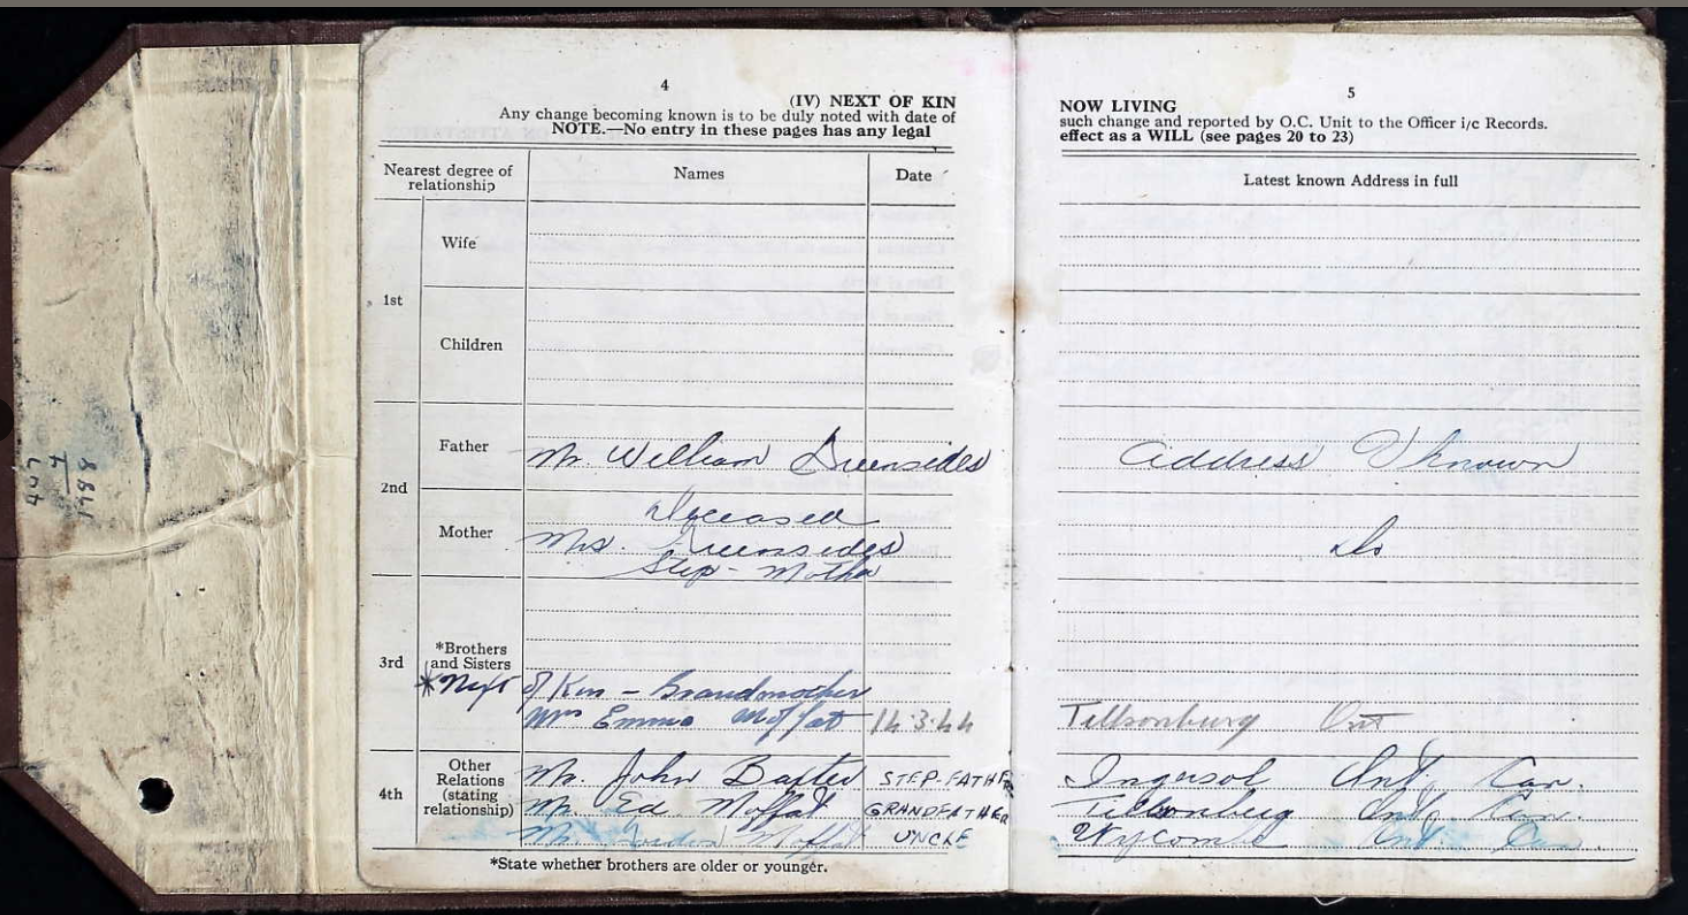 4
(IV) NEXT OF KIN
Any change becoming known is to be duly noted with date of
NOTE.—No entry in these pages has any legal
Nearest degree of relationship
Names
Date
1st
Wife
Children
2nd
Father
Mr. William Greensides
Mother
Deceased
Mrs. Greensides
Step-Mother
3rd
*Brothers
and Sisters
*Next of Kin - Grandmother
Mrs Emma Moffat 14.3.44
4th
Other
Relations
(stating
relationship)
Mr. John Baxter STEP-FATHER
Mr. Ed. Moffat GRANDFATHER
Mr. Moffat UNCLE
*State whether brothers are older or younger.
5
NOW LIVING
such change and reported by O.C. Unit to the Officer i/c Records.
effect as a WILL (see pages 20 to 23)
Latest known Address in full
Address Uknown
Do
Tillsonburg Ont
Ingersol Ont. Can.
Tillsonberg Ont. Can.
Wycombe Ont. Can